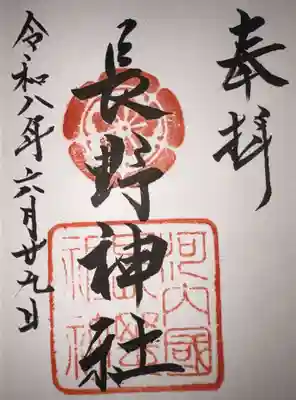 奉拝
長野神社
令和八年六月廿九日
河内國